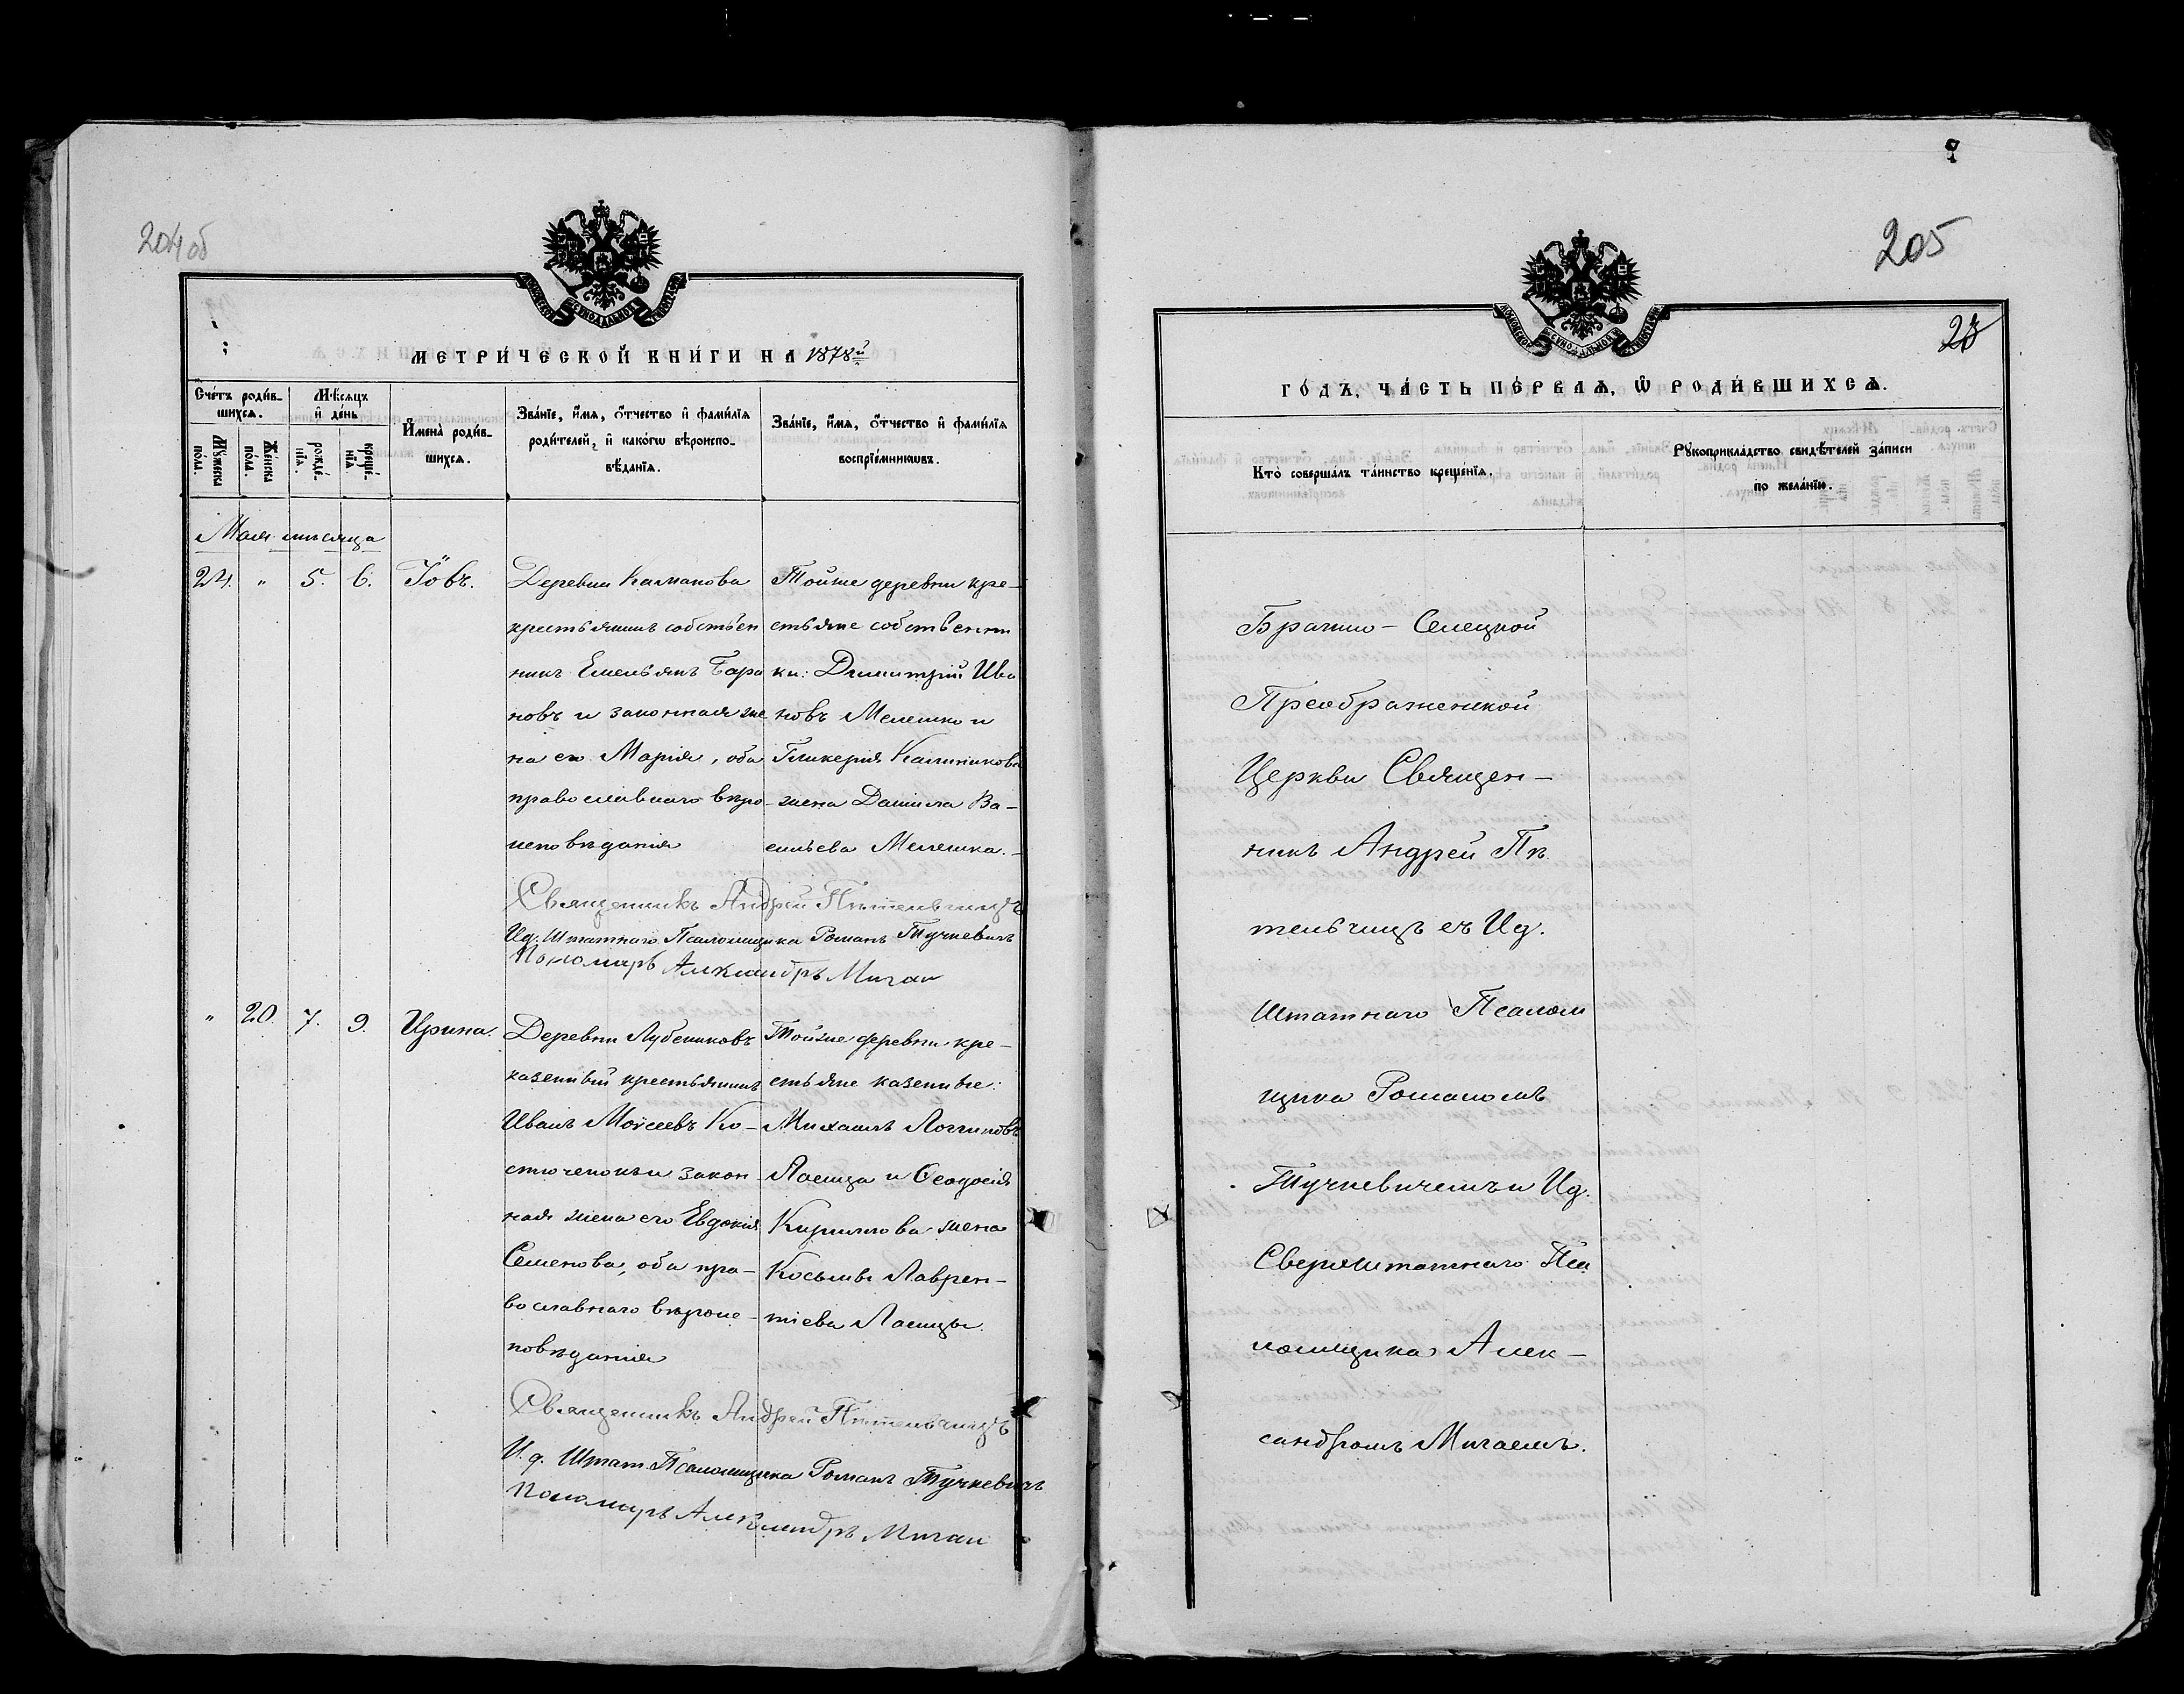 204 об
МЕТРИ́ЧЕСКОЙ КНИ́ГИ НА 1878й
Сче́тъ роди́в-
шихсѧ.
Мѣ́сѧцъ
и҆ де́нь
Мꙋ́жеска
по́ла.
Же́нска
по́ла.
рожде́-
нїѧ.
креще́-
нїѧ
И҆мена̀ роди́в-
шихсѧ.
Зва́нїе, и҆́мѧ, ѻ҆́тчество и҆ фами́лїѧ
роди́телей, и҆ како́гѡ вѣроиспо-
вѣ́данїѧ.
Зва́нїе, и҆́мѧ, ѻ҆́тчество и҆ фами́лїѧ
воспрїе́мникѡвъ.
Маія мѣсяца
24. " 5. 6. Іовъ.
Деревни Калманова
крестьянинъ собствен
никъ Емельянъ Бара
новъ и законная же
на его Марія, оба
православнаго вѣро-
исповѣданія
Тойже деревни кре-
стьяне собственни
ки: Димитрій Ива
новъ Мелешко и
Гликерія Калиникова
жена Даніила Ва-
сильева Мелешка.-
Священникъ Андрей Пѣтельчицъ
Ид. Штатнаго Псаломщика Романъ Тучкевичъ
Пономарь Александръ Мигай
" 20. 7. 9. Ирина.
Деревни Лубениковъ
казенный крестьянинъ
Иванъ Моисеевъ Ко-
стюченокъ и закон-
ная жена его Евдокія
Семенова, оба пра-
вославнаго вѣроис-
повѣданія
Тойже деревни кре-
стьяне казенные:
Михаилъ Логгиновъ
Ласица и Ѳеодосія
Кириллова жена
Косьмы Лаврен-
тіева Ласицы.
Священникъ Андрей Пѣтельчицъ
И. д. Штат. Псаломщика Романъ Тучкевичъ
Пономарь Александръ Мигай
205
ГО́ДЪ, ЧА́СТЬ ПЕ́РВАѦ, Ѽ РОДИ́ВШИХСѦ.
Кто̀ соверша́лъ та́инство креще́нїѧ.
Рꙋкоприкла́дство свидѣ́телей за́писи
по жела́нїю.
Бражно-Селецкой
Преображенской
Церкви Священ-
никъ Андрей Пѣ
тельчицъ съ Ид.
Штатнаго Псалом
щика Романомъ
Тучкевичемъ и Ид.
Сверхштатнаго Пса
ломщика Алек-
сандромъ Мигаемъ.